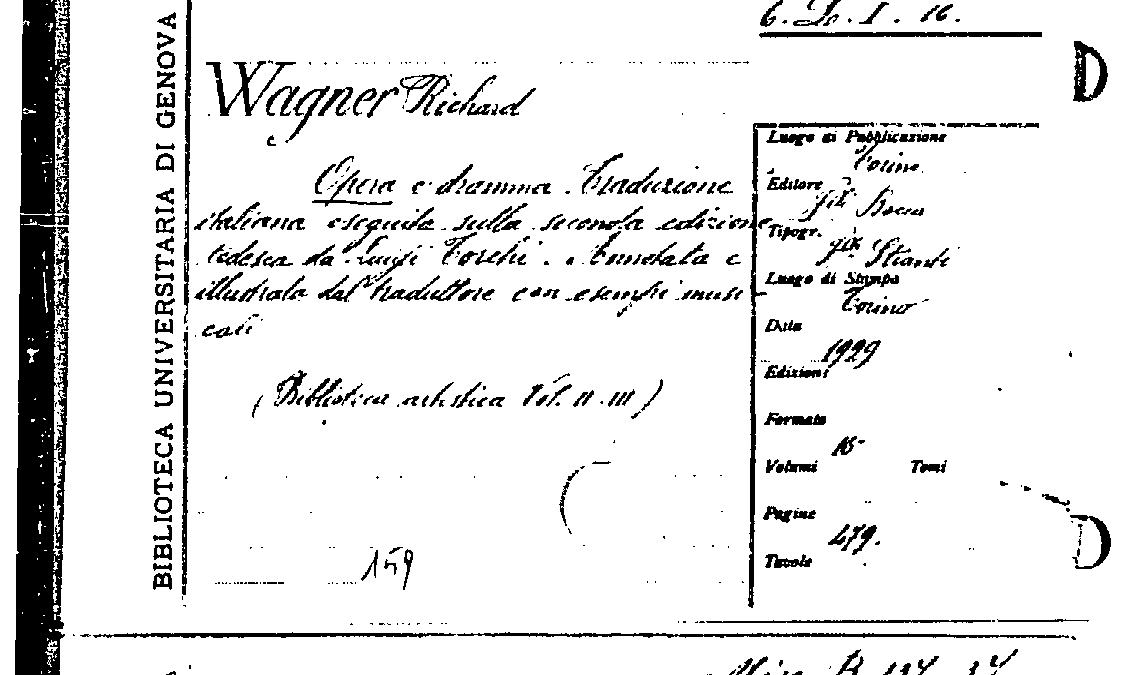 6. Lo. I. 16.
BIBLIOTECA UNIVERSITARIA DI GENOVA
Wagner Richard
Opera e dramma. Traduzione
italiana eseguita sulla seconda edizione
tedesca da Luigi Torchi. Annotata e
illustrata dal traduttore con esempi musi-
cali
(Biblioteca artistica Vol. II-III)
159
Luogo di Pubblicazione
Torino
Editore
Flli Bocca
Tipogr.
Luogo di Stampa
Torino
Data
1929
Edizioni
Formato
16°
Volumi Tomi
Pagine
479.
Tavole